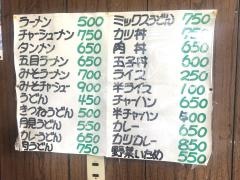 ラーメン 500
チャーシューメン 750
タンメン 650
五目ラーメン 650
みそラーメン 700
みそチャシュー 900
うどん 450
きつねうどん 500
月見うどん 550
カレーうどん 650
肉うどん 750
ミックスうどん 750
カツ丼 750
肉丼 650
玉子丼 600
ライス 250
半ライス 100
チャーハン 650
半チャーハン 500
カレー 650
カツカレー 850
野菜いため 550